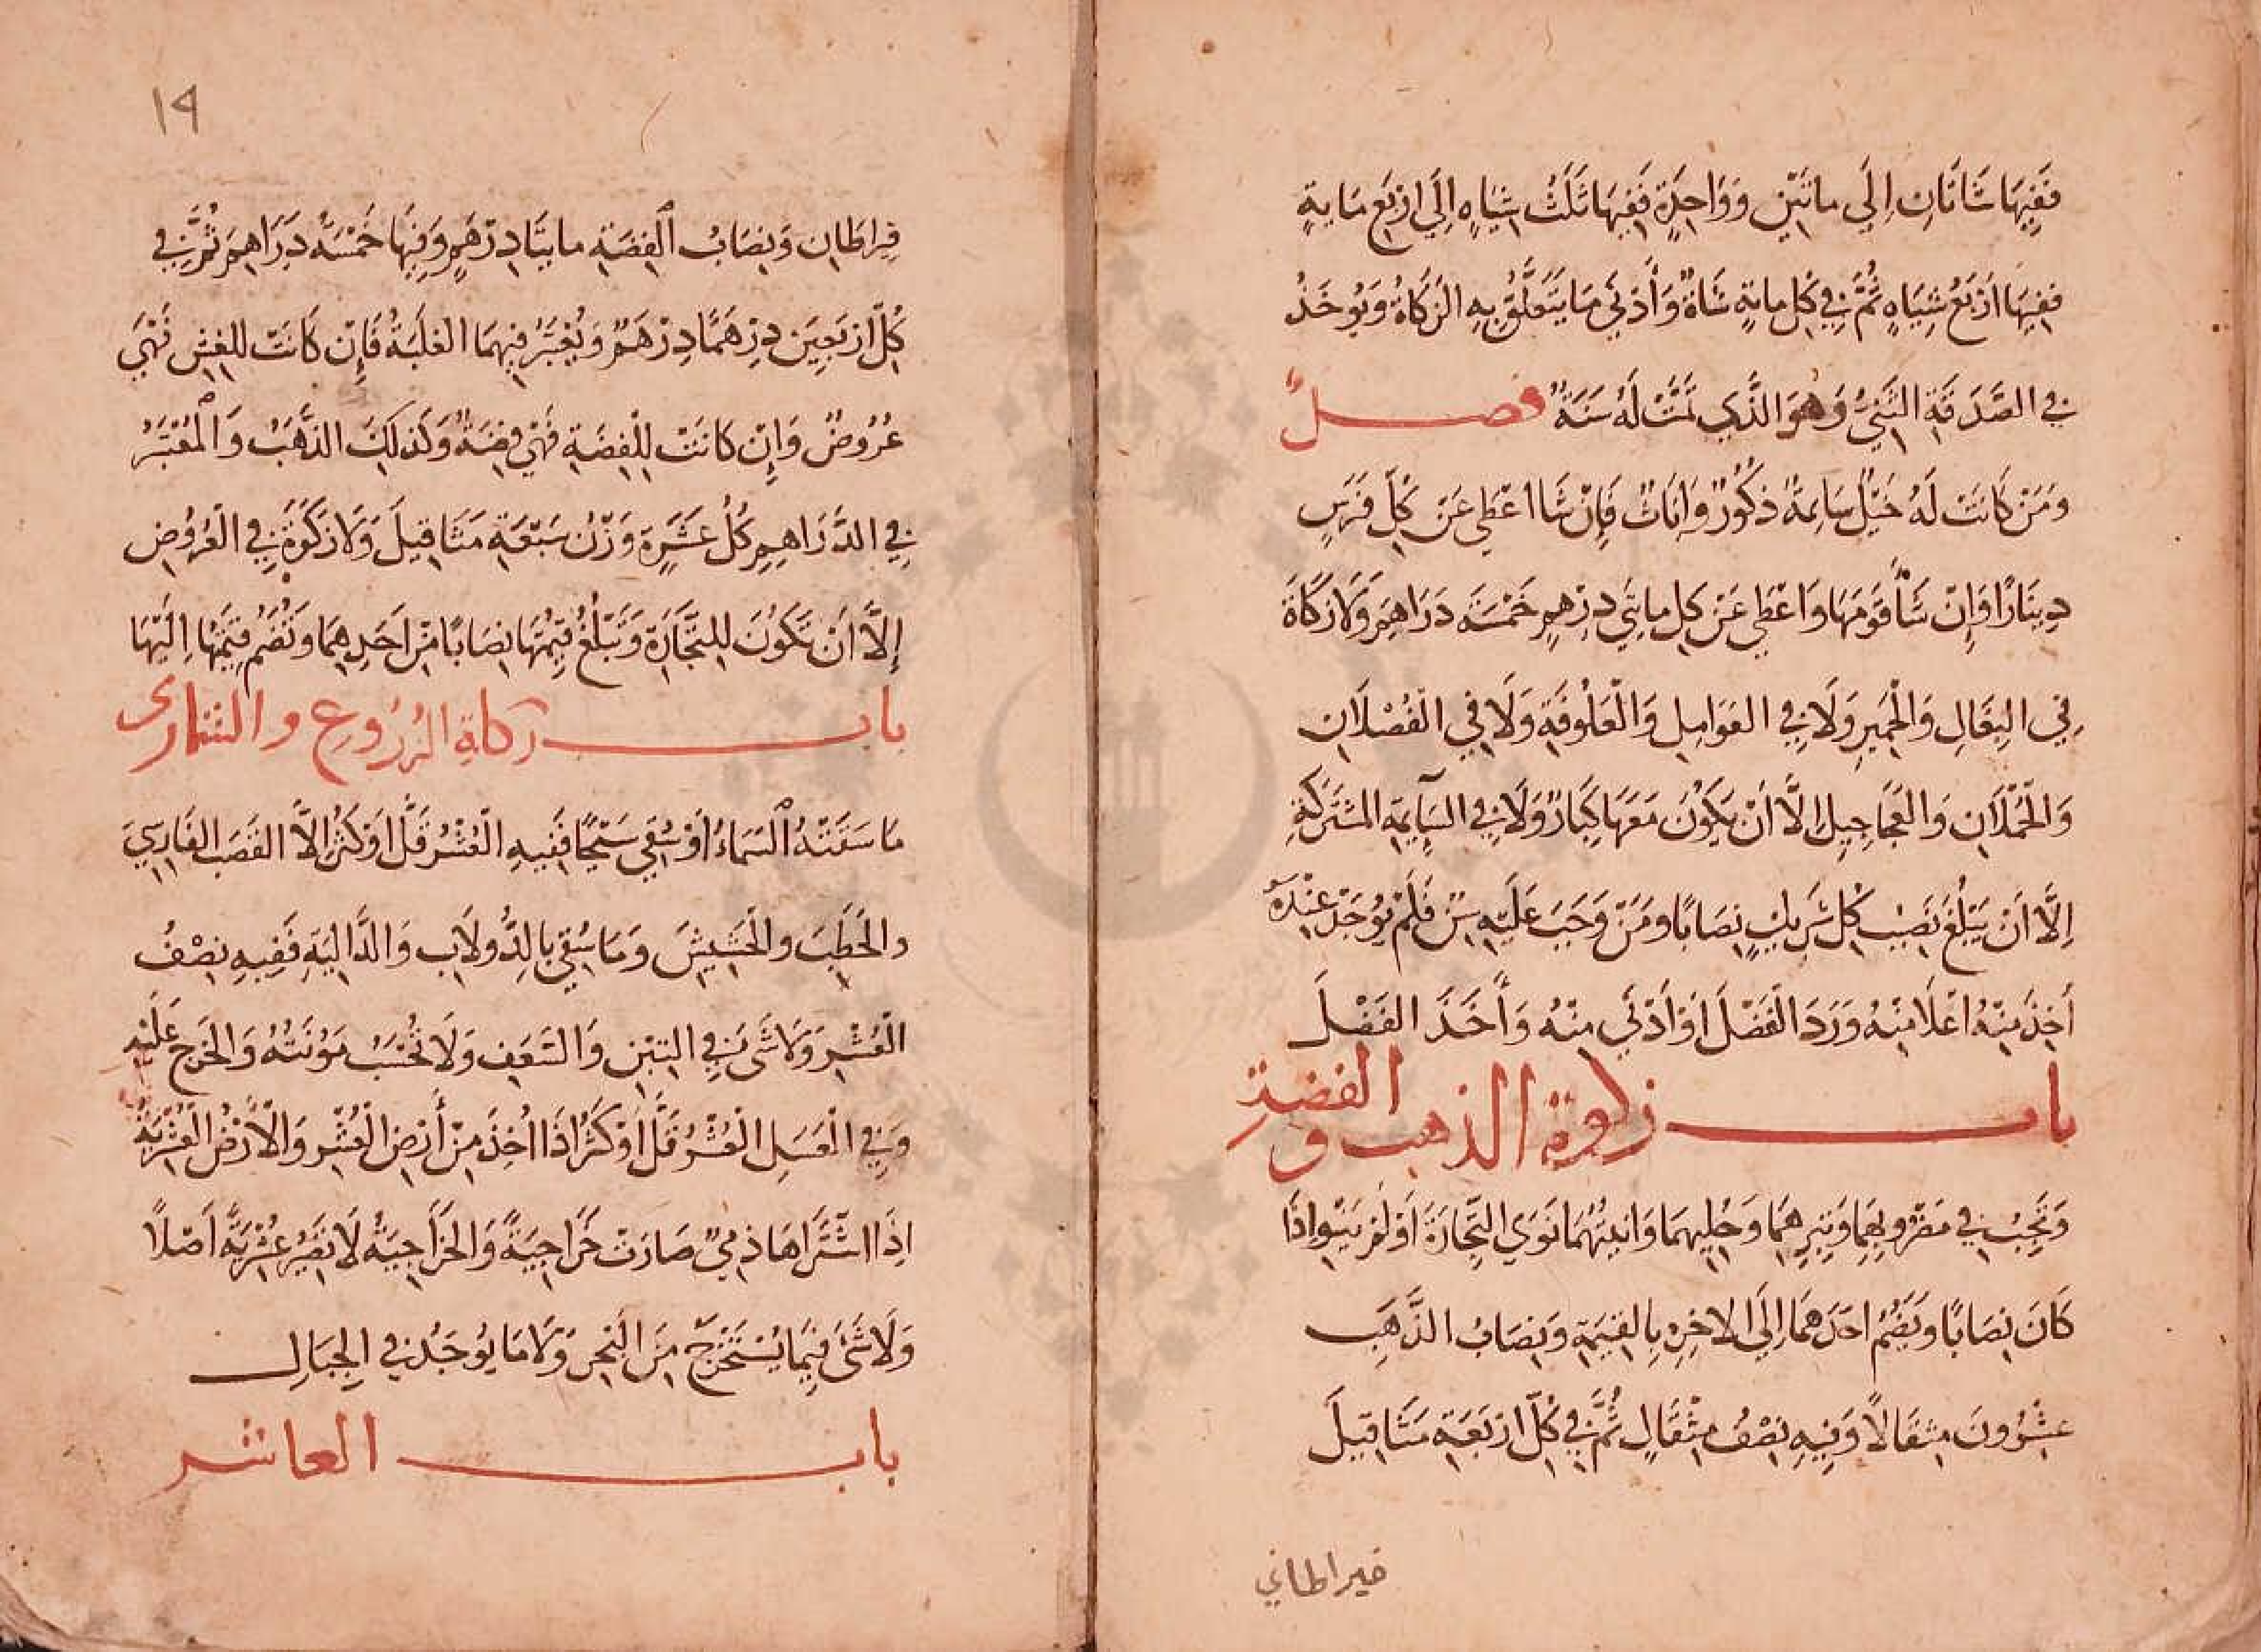 فَفِيهَا شَاتَانِ إِلَى مِائتَيْنِ وَوَاحِدَةٍ فَفِيهَا ثَلَثُ شِيَاهٍ إِلَى ارْبَعِ مَايةٍ
فَفِيهَا ارْبَعُ شِيَاهٍ ثُمَّ فِي كُلِ مايةٍ شَاةٌ وَأَدْنَي مَا يَتَعَلَّقُ بِهِ الزَكَاةُ وَيُوخَذُ
فِي الصَّدَقَةِ الثَّنِيُّ وَهُوَ الَّذِي تَمَّتْ لَهُ سَنَةٌ فصــلٌ
وَمَنْ كَانَتْ لَهُ خَيْلٌ سَايِمَةٌ ذكُورٌ وَاِنَاثٌ فَإِنْ شَا اعْطَي عَنْ كُلِّ فَرَسٍ
دِينَارًا وَإِنْ شَأَ قَوَمَهَا وَاعْطَي عَنْ كُلِ مايتَي دِرْهمٍ خَمْسَة دَرَاهِمَ وَلَا زَكَاةَ
فِي البِغَالِ وَالْحَمِيرِ وَلَا فِي العَوَامِلِ وَالْعَلُوفَةِ وَلَا فِي الْفُصْلَانِ
وَالْحُمْلَانِ وَالعَجَاجِيلِ الَّا أَنْ يَكُوْنَ مَعَهَا كِبَارٌ وَلَا فِي السَآيِمَةِ المشتَرَكَةِ
إِلَّا أَنْ يَبْلُغَ نَصِيْبُ كُلِ شَرِيكٍ نِصَابًا وَمَنْ وَجَبَ عَلَيْهِ سِنٌ فَلَمْ يُوجَدْ عِنْدَهُ
أُخِذَ مِنْهُ اعْلَا مِنْهُ وَرَدَ الْفَضْلَ اوْ أَدْنَي مِنْهُ وَأَخَذَ الفَضْلَ
بابــــ زكوة الذهب و الفضةِ
وَتَجِبُ فِي مَضْرُوبِهِمَا وَتِبْرِهِمَا وَحُلِيِهِمَا وَانِيَتِهُمَا نَوَي التِجَارَةَ أَوْ لَمْ يَنْوِ اذَا
كَانَ نِصَابًا وَيَضُمُ احَدَهُمَا إِلَى الاخِرِ بِالقِيمَةِ وَنِصَابُ الذَّهَبِ
عِشْرُونَ مِثقَالًا وَفِيهِ نِصْفُ مِثْقَالٍ ثُمَّ فِي كُلِّ ارْبَعَةِ مَثَاقِيلَ
قيراطاني
١٩
قِيراطَانِ وَنِصَابُ الفِضَةِ مايتَا دِرْهَمٍ وَفِيهَا خَمْسَةُ دَرَاهِمَ ثُمَّ فِي
كُلِّ ارْبَعِينَ دِرْهَمًا دِرْهَمٌ وَيُعْتَبَرُ فِيهِمَا الغَلَبَةُ فَإِنْ كَانَتْ للغِشِ فَهْيَ
عُرُوضٌ وَإِنْ كَانَتْ لِلْفِضَةِ فَهْي فِضَةٌ وَكَذلِكَ الذَّهَبُ وَالْمُعْتَبَرُ
فِي الدَّرَاهِمِ كُلُ عَشَرَةٍ وَزْنُ سَبْعَةِ مَثَاقِيلَ وَلَا زَكَوةَ فِي الْعُرُوضِ
إِلَّا أَنْ تَكُونَ لِلتِّجَارَةِ وَتَبْلُغُ قِيمَتُهَا نِصَابًا مِنْ احَدِهِمَا وَتُضَمُ قِيمَتُهَا الَيْهَا
بابــــ زكاةِ الزُرُوعِ والثمار
مَا سَقَتْهُ السَمَاءُ أَوْ سُقِي سَيْحًا فَفِيهِ الْعُشْرُ قَلَّ اوْ كَثُرَ إلاَّ القَصَبَ الفَارِسِيَ
والْحَطَبَ والْحَشِيشَ وَمَا سُقِي بِالدُّولَابِ وَالدَّالِيَةِ فَفِيهِ نِصْفُ
الْعُشْرِ وَلَا شَىَ فِي التِبْنِ وَالسَّعَفِ وَلَا تُحْسَبُ مَوُنَتُهُ وَالخَرجُ عَلَيْهِ
وَفِي الْعَسَلِ الْعُشْرُ قَلَّ أَوْ كَثُرَ اذَا اُخِذَ مِنْ أَرْضِ الْعُشْرِ وَالْأَرْضُ الْعُشْرِيَةُ
اِذَا اشْتَرَاهَا ذِمِيٌ صَارَتْ خَرَاجِيَةً وَالخَرَاجِيَةُ لَا تَصِيرُ عُشْرِيَةً اَصْلاً
وَلَا شَىَ فِيمَا يُسْتَخْرَجُ مِنَ الْبَحْرِ وَلَا مَا يُوجَدُ فِي الْجِبَالِ
بابــــ العاشر